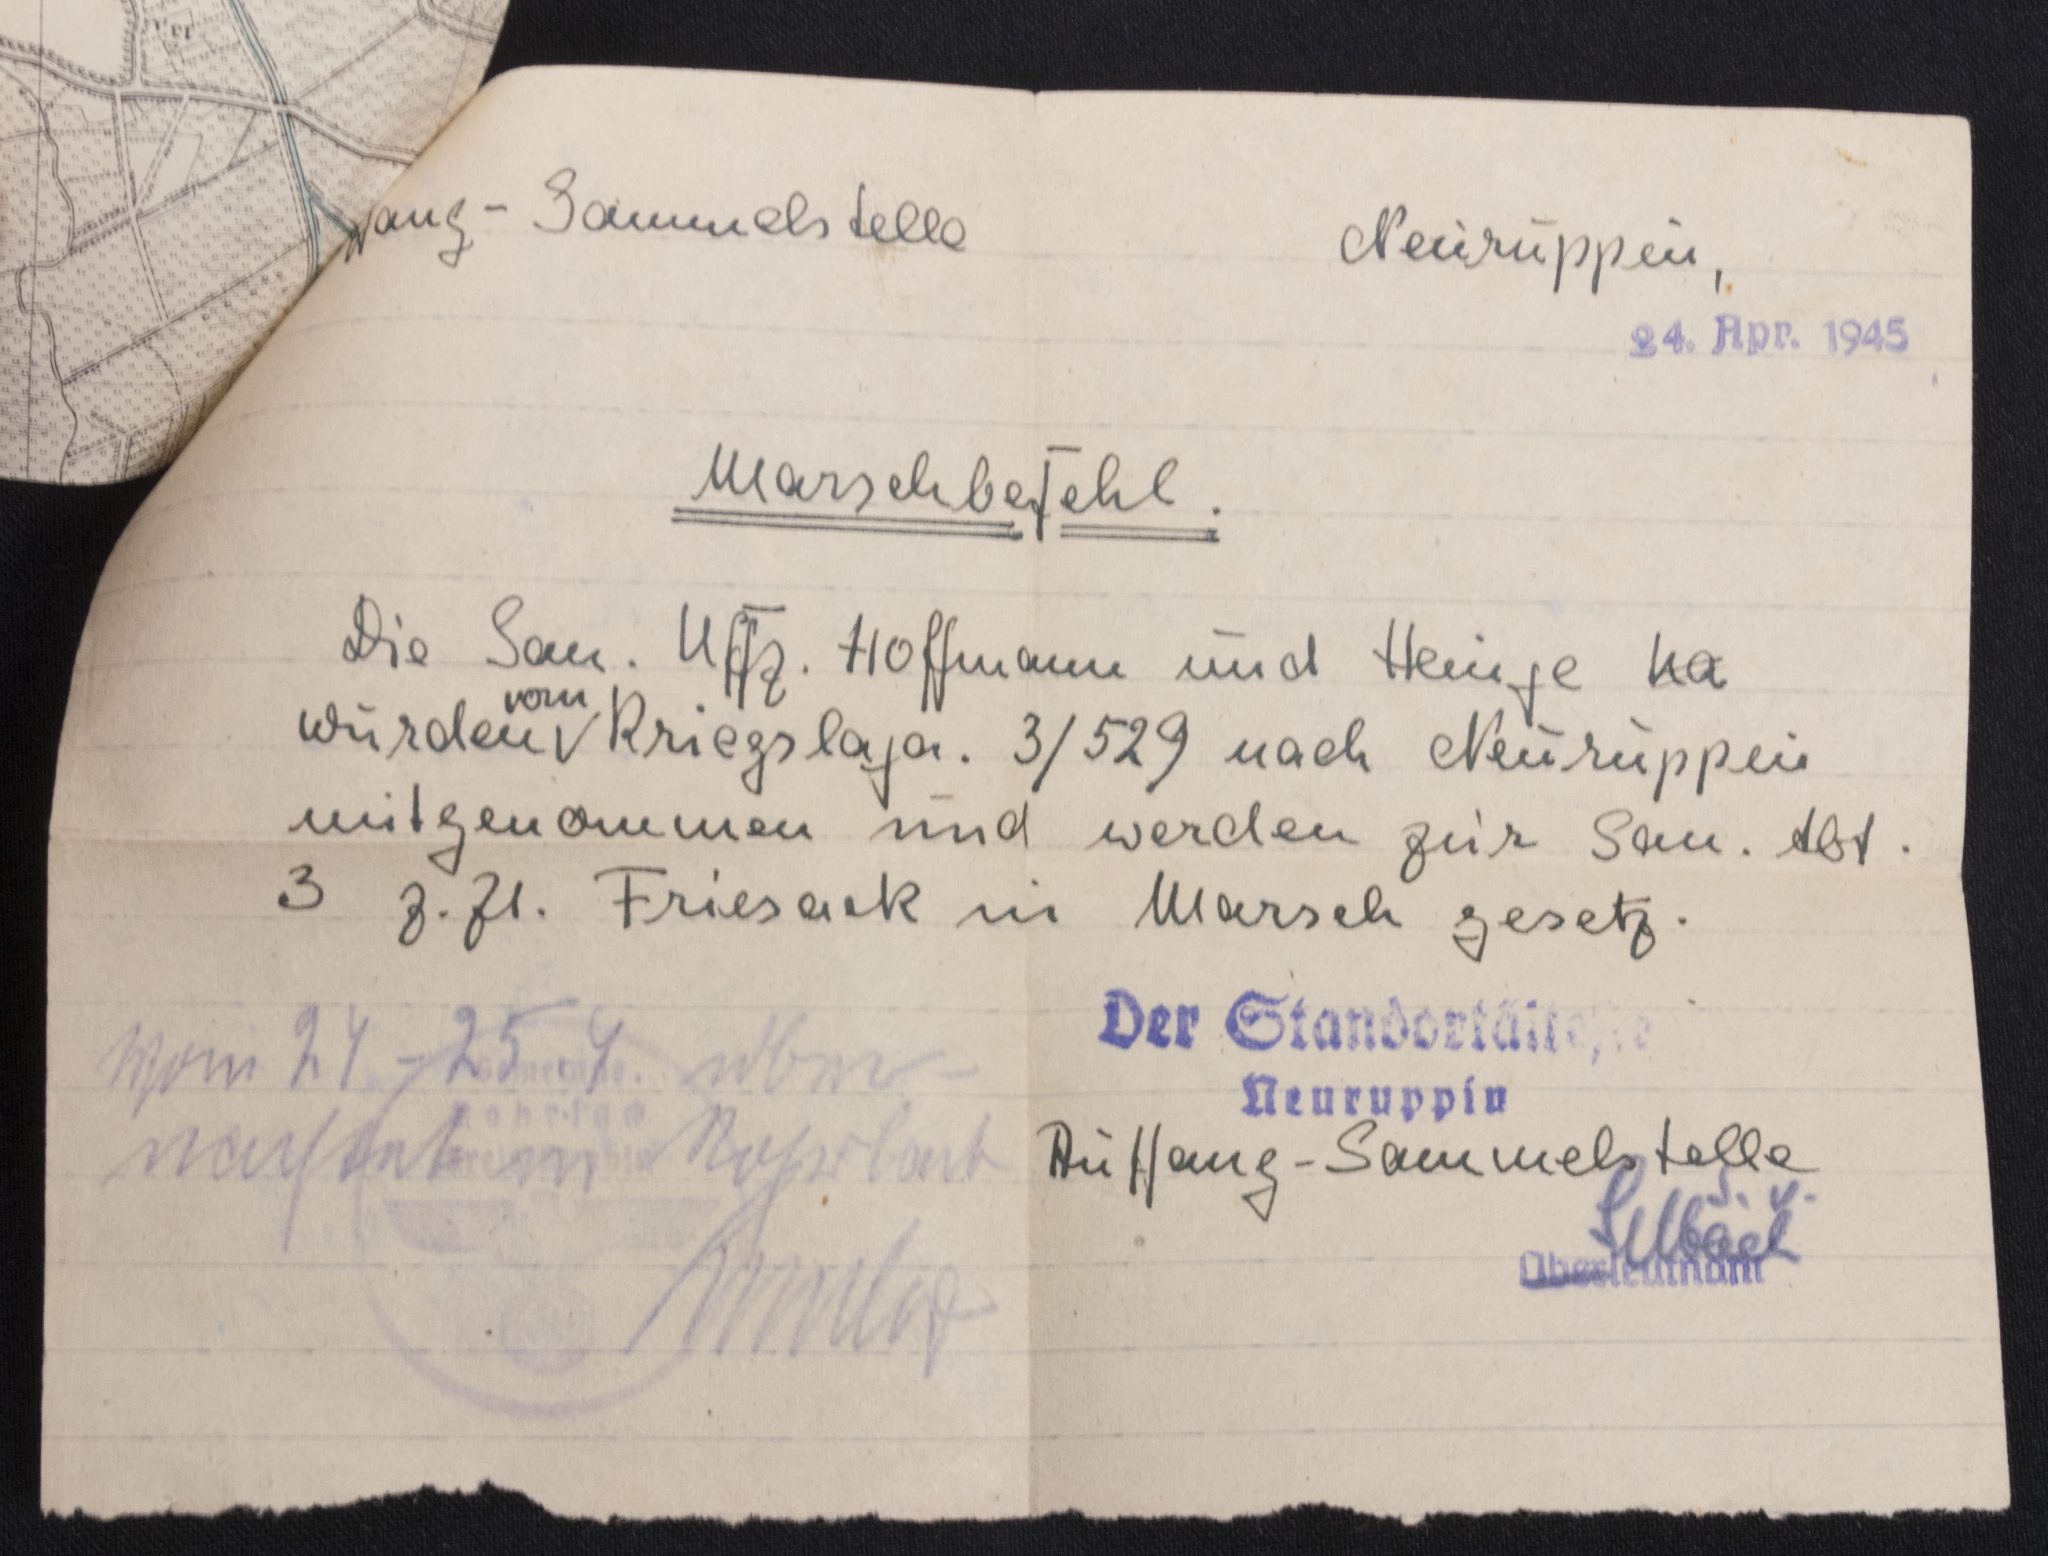 ver
fang - Sammelstelle
Neuruppin,
24. Apr. 1945
Marschbefehl.
Die San. Uffz. Hoffmann und Heinze
wurden vom Kriegslaza. 3/529 nach Neuruppin
mitgenommen und werden zur San. Abt.
3 z. Zt. Friesack in Marsch gesetz.
Der Standortälteste
Neuruppin
Auffang-Sammelstelle
Oberleutnant
Vom 24 - 25 4 über-
nachtet in